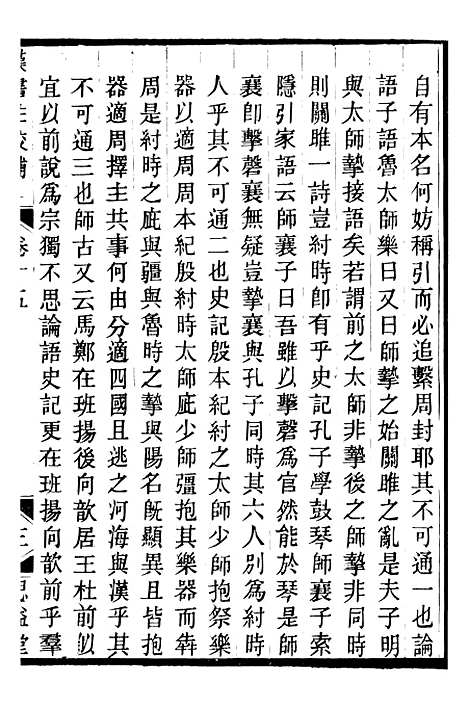 自有本名何妨稱引而必追繫周封耶其不可通一也論
語子語魯太師樂曰又曰師摯之始關雎之亂是夫子明
與太師摯接語矣若謂前之太師非摯後之師摯非同時
則關雎一詩豈紂時卽有乎史記孔子學鼓琴師襄子索
隱引家語云師襄子曰吾雖以擊磬爲官然能於琴是
襄卽擊磬襄無疑豈摯襄與孔子同時其六人別爲紂時
人乎其不可通二也史記殷本紀紂之太師少師抱祭樂
器以適周周本紀殷紂時太師庛少師彊抱其樂器而犇
周是紂時之庛與彊與魯時之摯與陽名旣顯異且皆抱
器適周擇主共事何由分適四國且逃之河海與漢乎其
不可通三也師古又云馬鄭在班揚後向歆居王杜前㠯
宜以前說爲宗獨不思論語史記更在班揚向歆前乎羣
漢書注校補 卷十五 三 思益堂